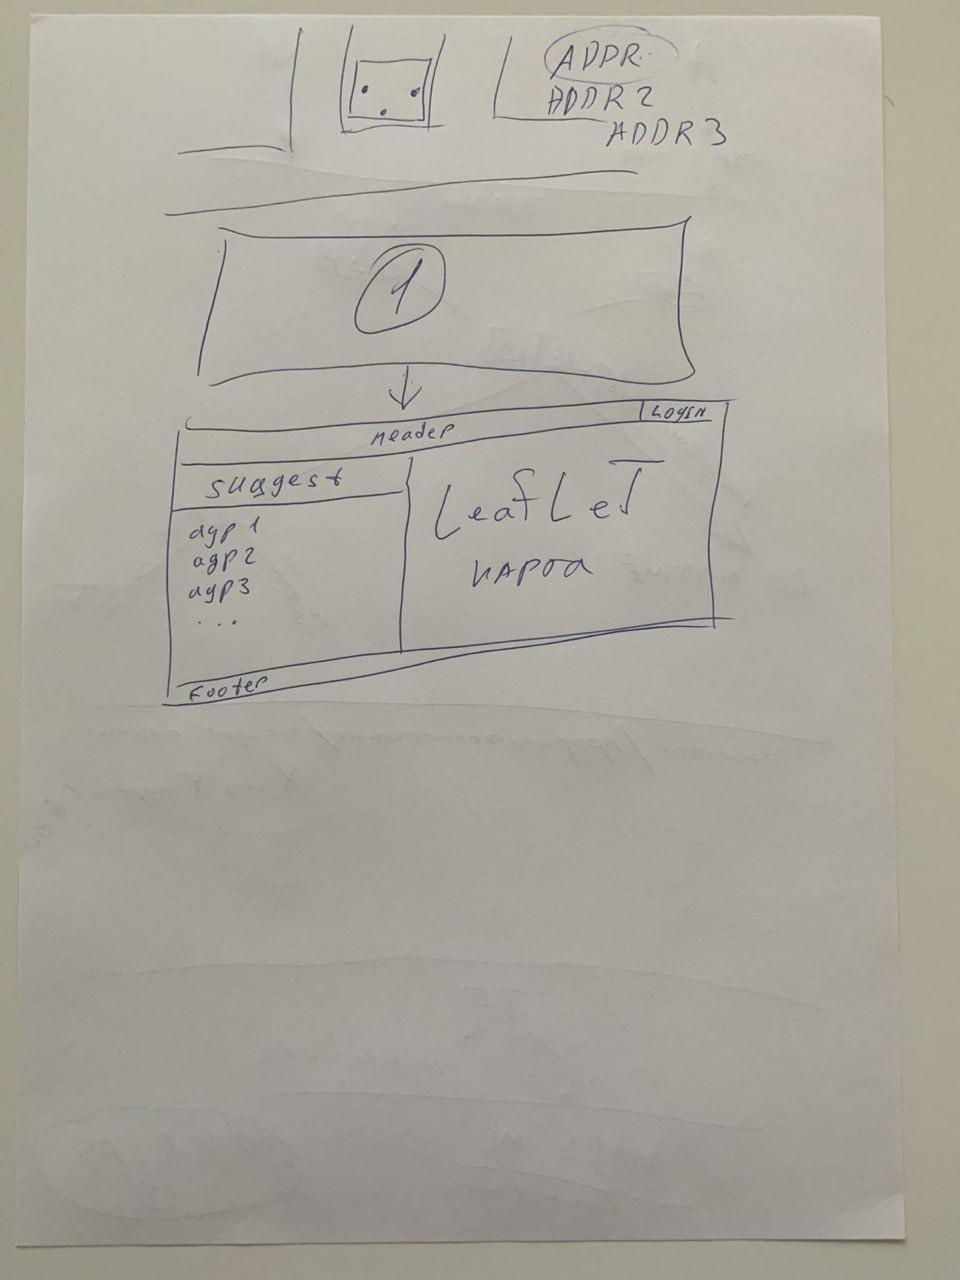 ADDR
ADDR2
ADDR3
1
LOGIN
Header
suggest
адр1
адр2
адр3
...
LeafLeT
карта
Footer